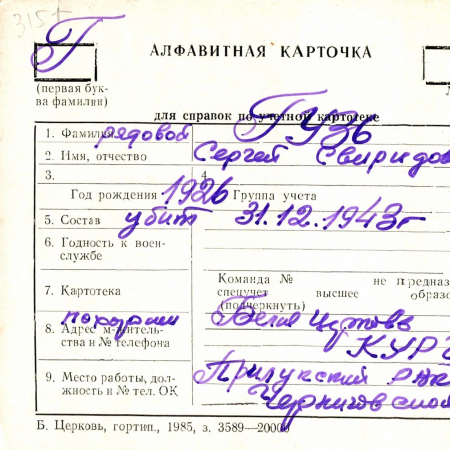 315т
Г
АЛФАВИТНАЯ КАРТОЧКА
(первая бук-
ва фамилии)
для справок по учетной картотеке
1. Фамилия рядовой ГУЗЬ
2. Имя, отчество Сергей Свиридов
3. 4.
Год рождения 1926 Группа учета
5. Состав убит 31.12.1943г
6. Годность к воен-
службе
Команда № не предназ
7. Картотека спецучет высшее образо
(подчеркнуть)
похорон
8. Адрес м-житель-
ства и № телефона
КУР
9. Место работы, дол-
жность и № тел. ОК
Прилукский
Черниговской
Б. Церковь, гортип., 1985, з. 3589—20000